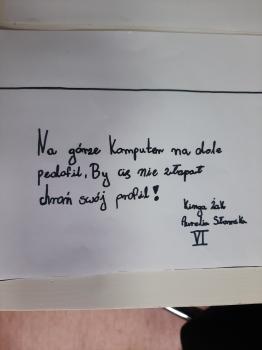 Na górze Komputer na dole
pedofil, By cię nie złapał
chroń swój profil!
Kinga Żak
Aurelia
VI